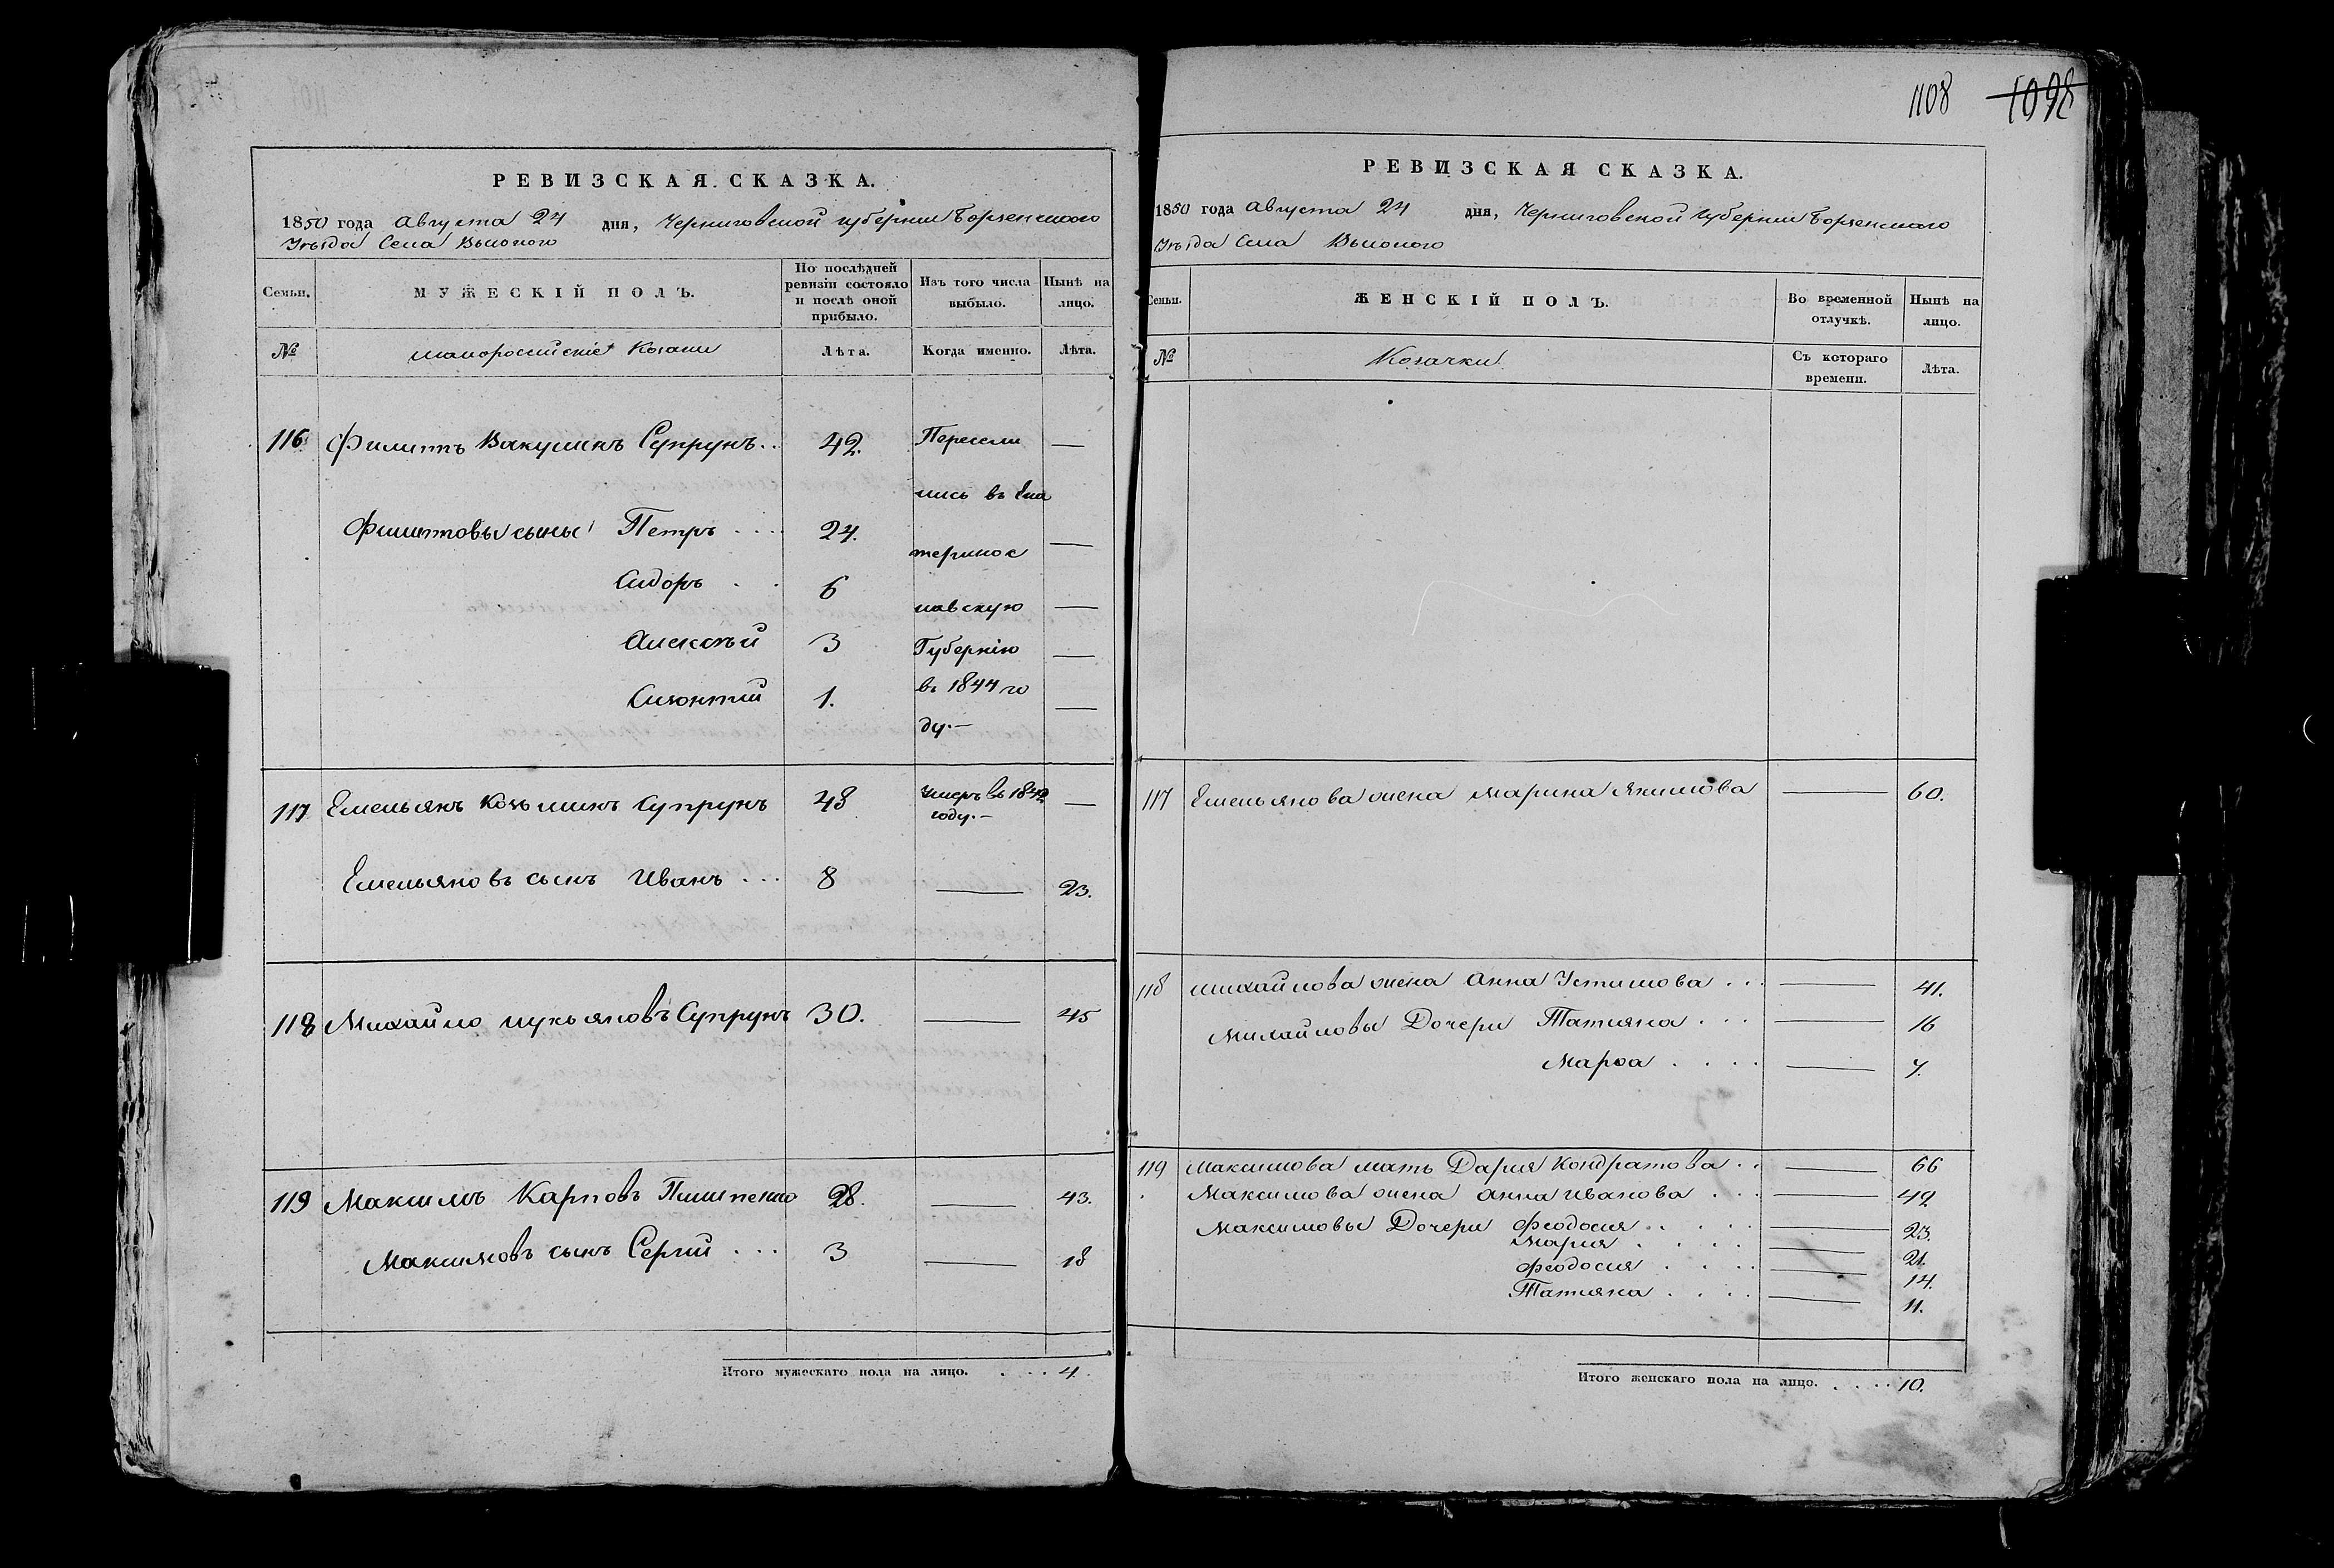 1108 1098
РЕВИЗСКАЯ СКАЗКА.
1850 года Августа 24 дня, Черниговской губернии Борзенского
Уѣзда Села Вьюного
Семьи.
МУЖЕСКІЙ ПОЛЪ.
По послѣдней ревизіи состояло и послѣ оной прибыло.
Изъ того числа выбыло.
Нынѣ на лицо.
№ малороссійскіе Козаки Лѣта. Когда именно. Лѣта.
116. Филиппъ Вакуминъ Супрунъ.. 42. Пересели —
лись въ Ека
Филиповы сыны Петръ .... 24. —
теринос
Сидоръ .. 6 —
лавскую
Алексѣй 3 Губернію —
въ 1844 го
1. —
ду.—
117 Емельянъ Козьминъ Супрунъ 48 Умеръ въ 1842 —
году.—
Емельяновъ сынъ Иванъ ... 8 — 23.
118 Михайло Лукьяновъ Супрунъ 30. — 45
119 Максимъ Карповъ 28. — 43.
Максимовъ сынъ Сергій ... 3 — 18
Итого мужескаго пола на лицо. .... 4.
РЕВИЗСКАЯ СКАЗКА.
1850 года Августа 24 дня, Черниговской Губернии Борзенского
Уѣзда Села Вьюного
Семьи.
ЖЕНСКІЙ ПОЛЪ.
Во временной отлучкѣ.
Нынѣ на лицо.
№ Козачки Съ котораго времени. Лѣта.
117 Емельянова жена Марина Якимова — 60.
118 Михайлова жена Анна Устимова ... — 41.
Михайловы Дочери Татияна ... — 16
Марѳа .... — 7.
119 Максимова мать Дария Кондратова .. — 66
Максимова жена Анна Иванова ... — 42
Максимовы Дочери Феодосия .... — 23.
Мария .... — 21.
Феодосия .... — 14.
Татияна .... — 11.
Итого женскаго пола на лицо. .... 10.